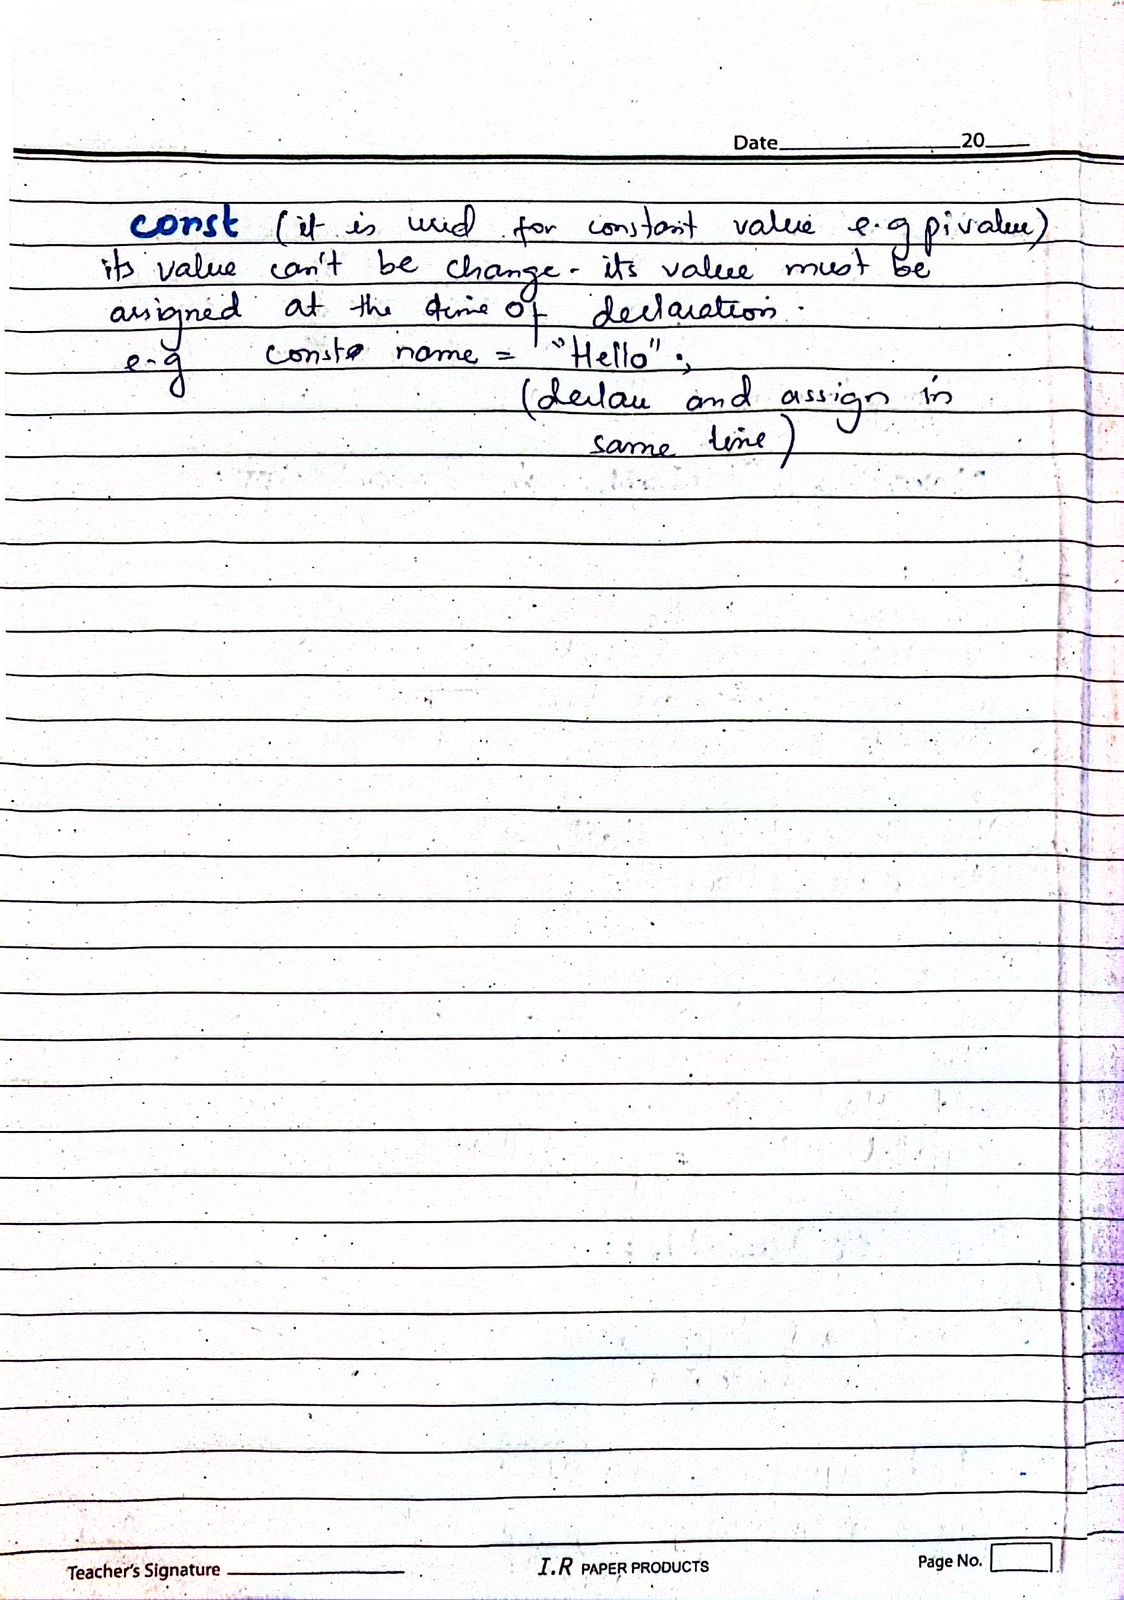 Date 20
const (it is used for constant value e.g pi value)
its value can't be change. its value must be
assigned at the time of declaration.
e-g const name = "Hello";
(declare and assign in
same line)
Teacher's Signature I.R PAPER PRODUCTS Page No.